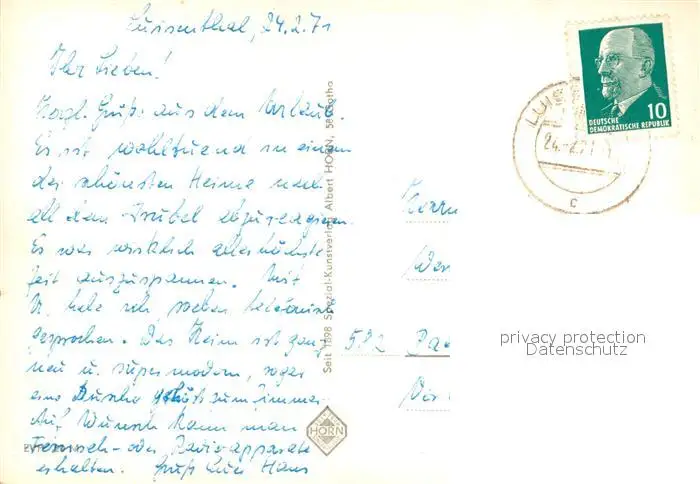 Luisenthal, 24.2.71
Ihr Lieben!
Herzl. Grüße aus dem Urlaub.
Es ist wohltuend in einem
der schönsten Heime nach
all dem Trubel abzureagieren.
Es war wirklich allerhöchste
Zeit auszuspannen. Mit
U. habe ich soeben telefonisch
gesprochen. Das Heim ist ganz
neu u. supermodern, sogar
eine Dusche gehört zum Zimmer.
Auf Wunsch kann man
Fernseh- oder Radioapparate
erhalten. Gruß Euer Hans
Seit 1898 Spezial-Kunstverlag Albert HORN, 58 Gotha
HORN
Herrn
Wer
582 Bad
DEUTSCHE
DEMOKRATISCHE REPUBLIK
10
LUIS
24.-2.71
c
privacy protection
Datenschutz